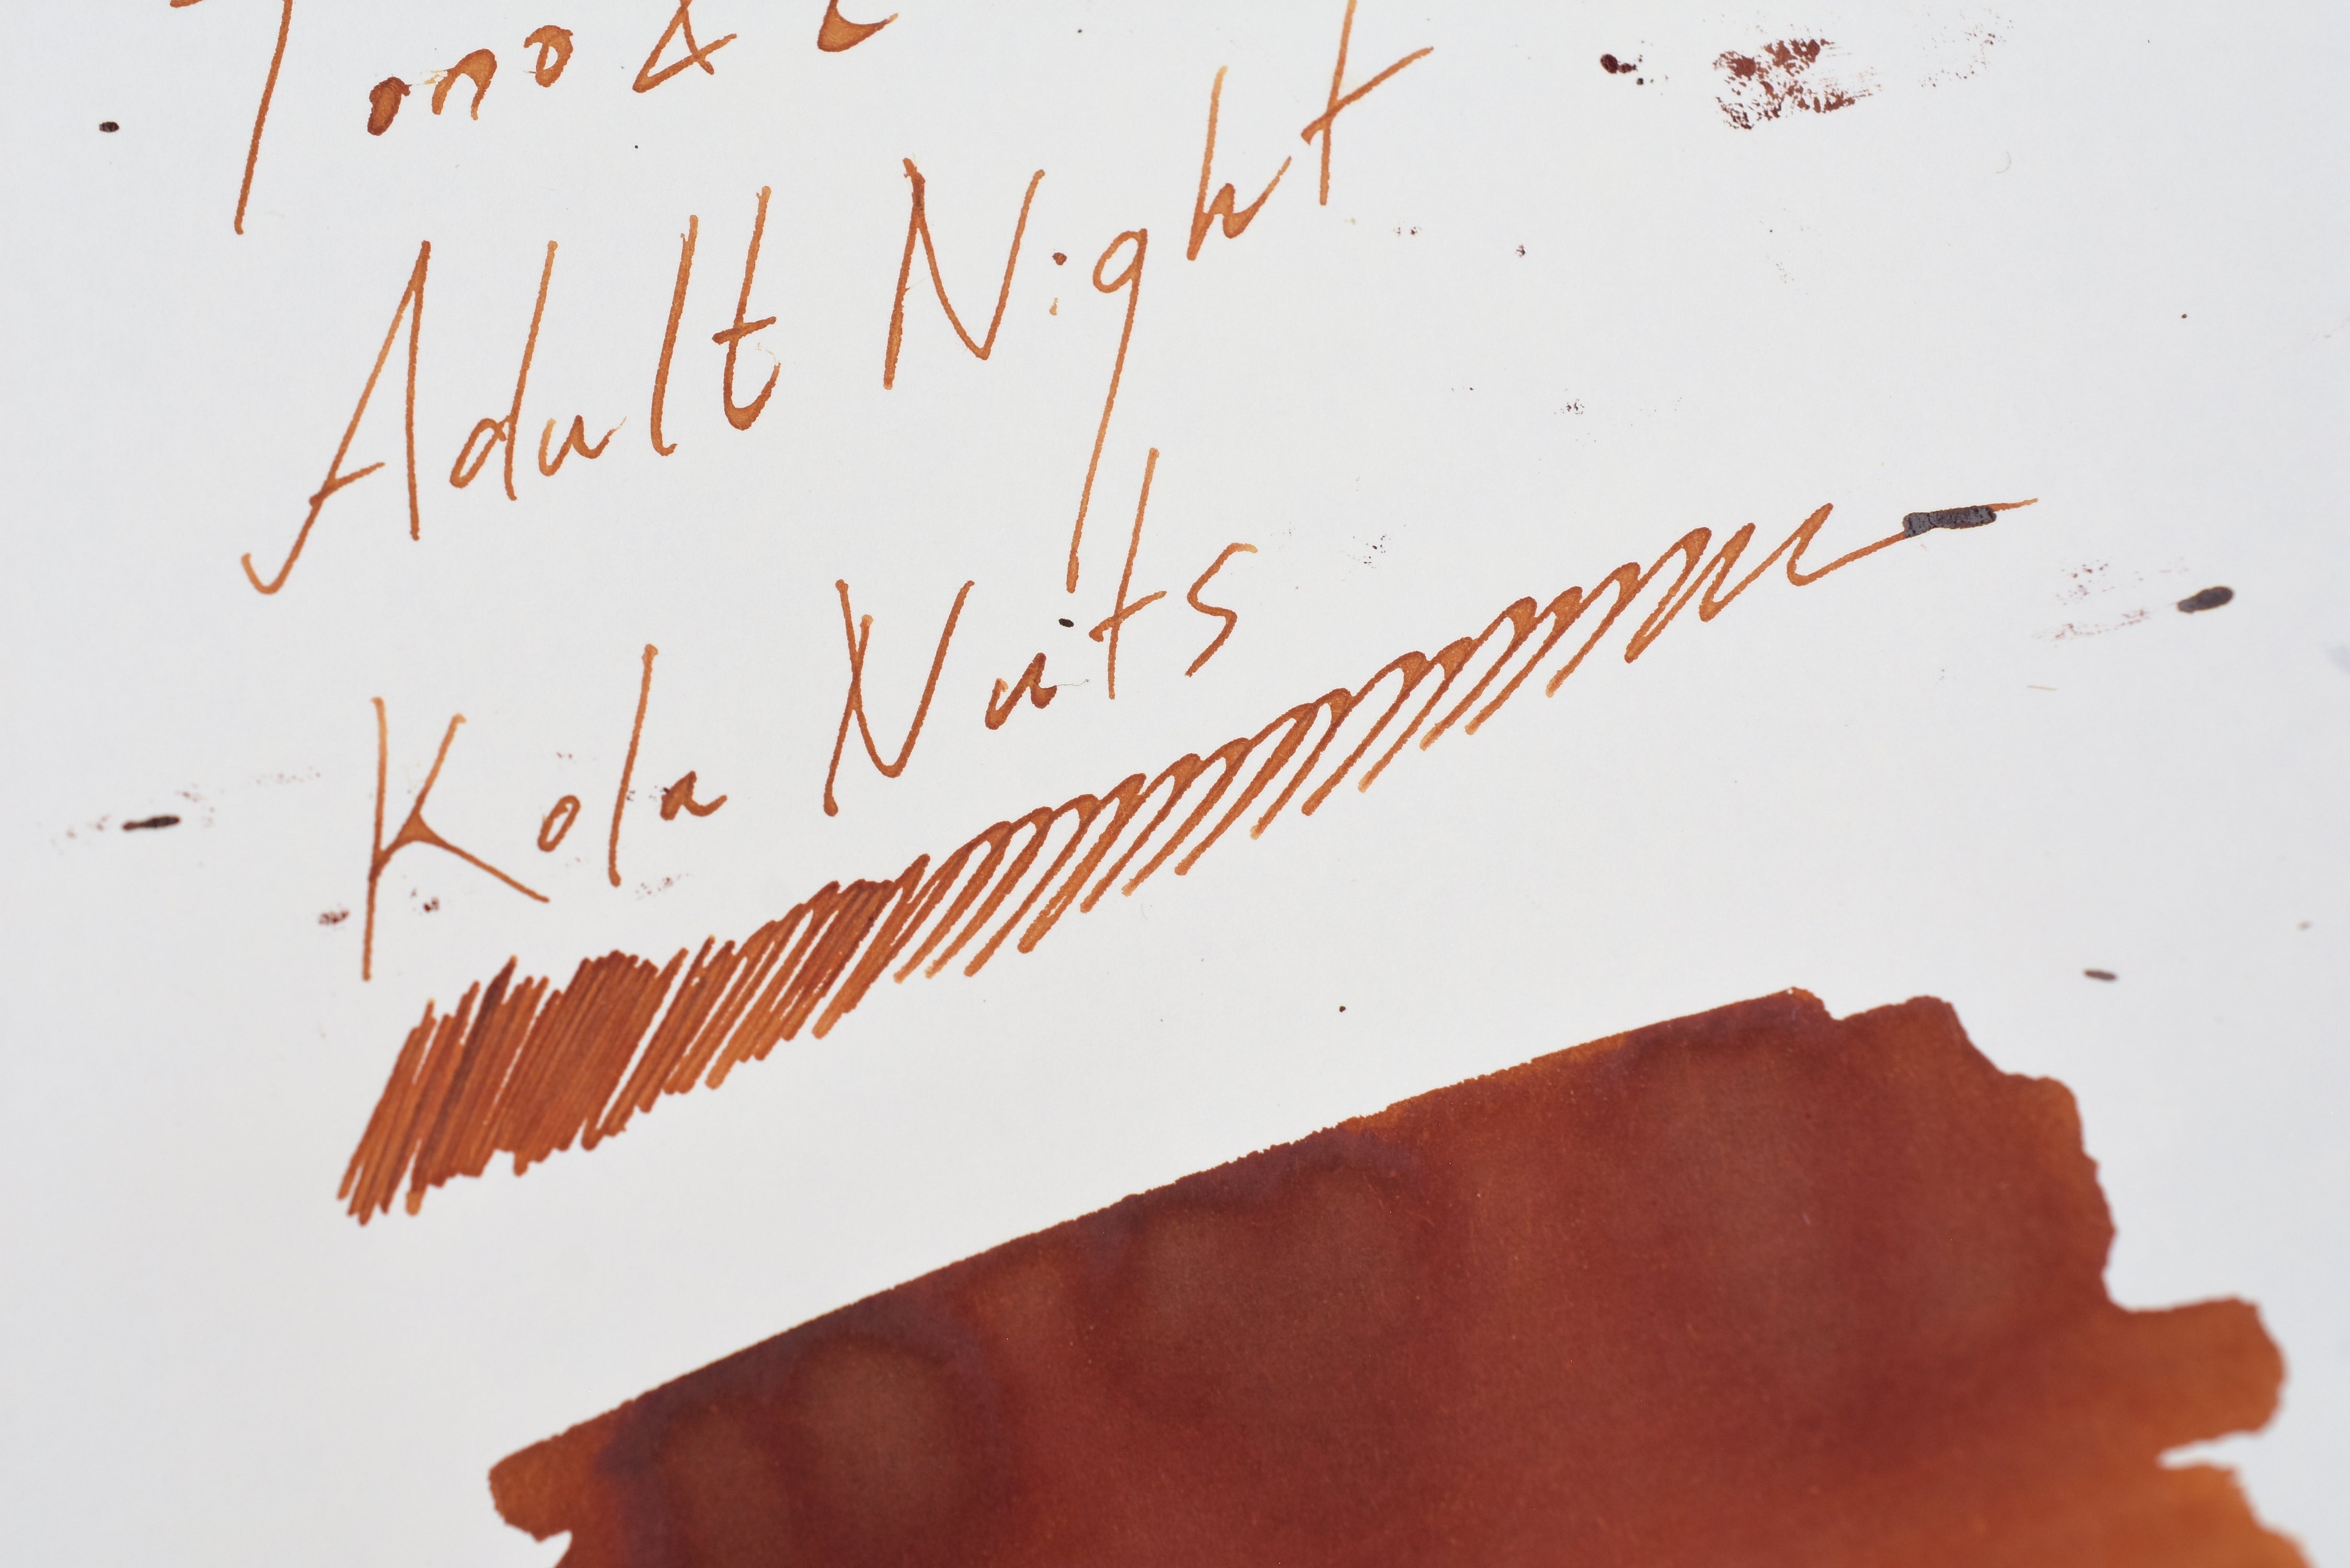 Tono &
Adult Night
Kola Nuts